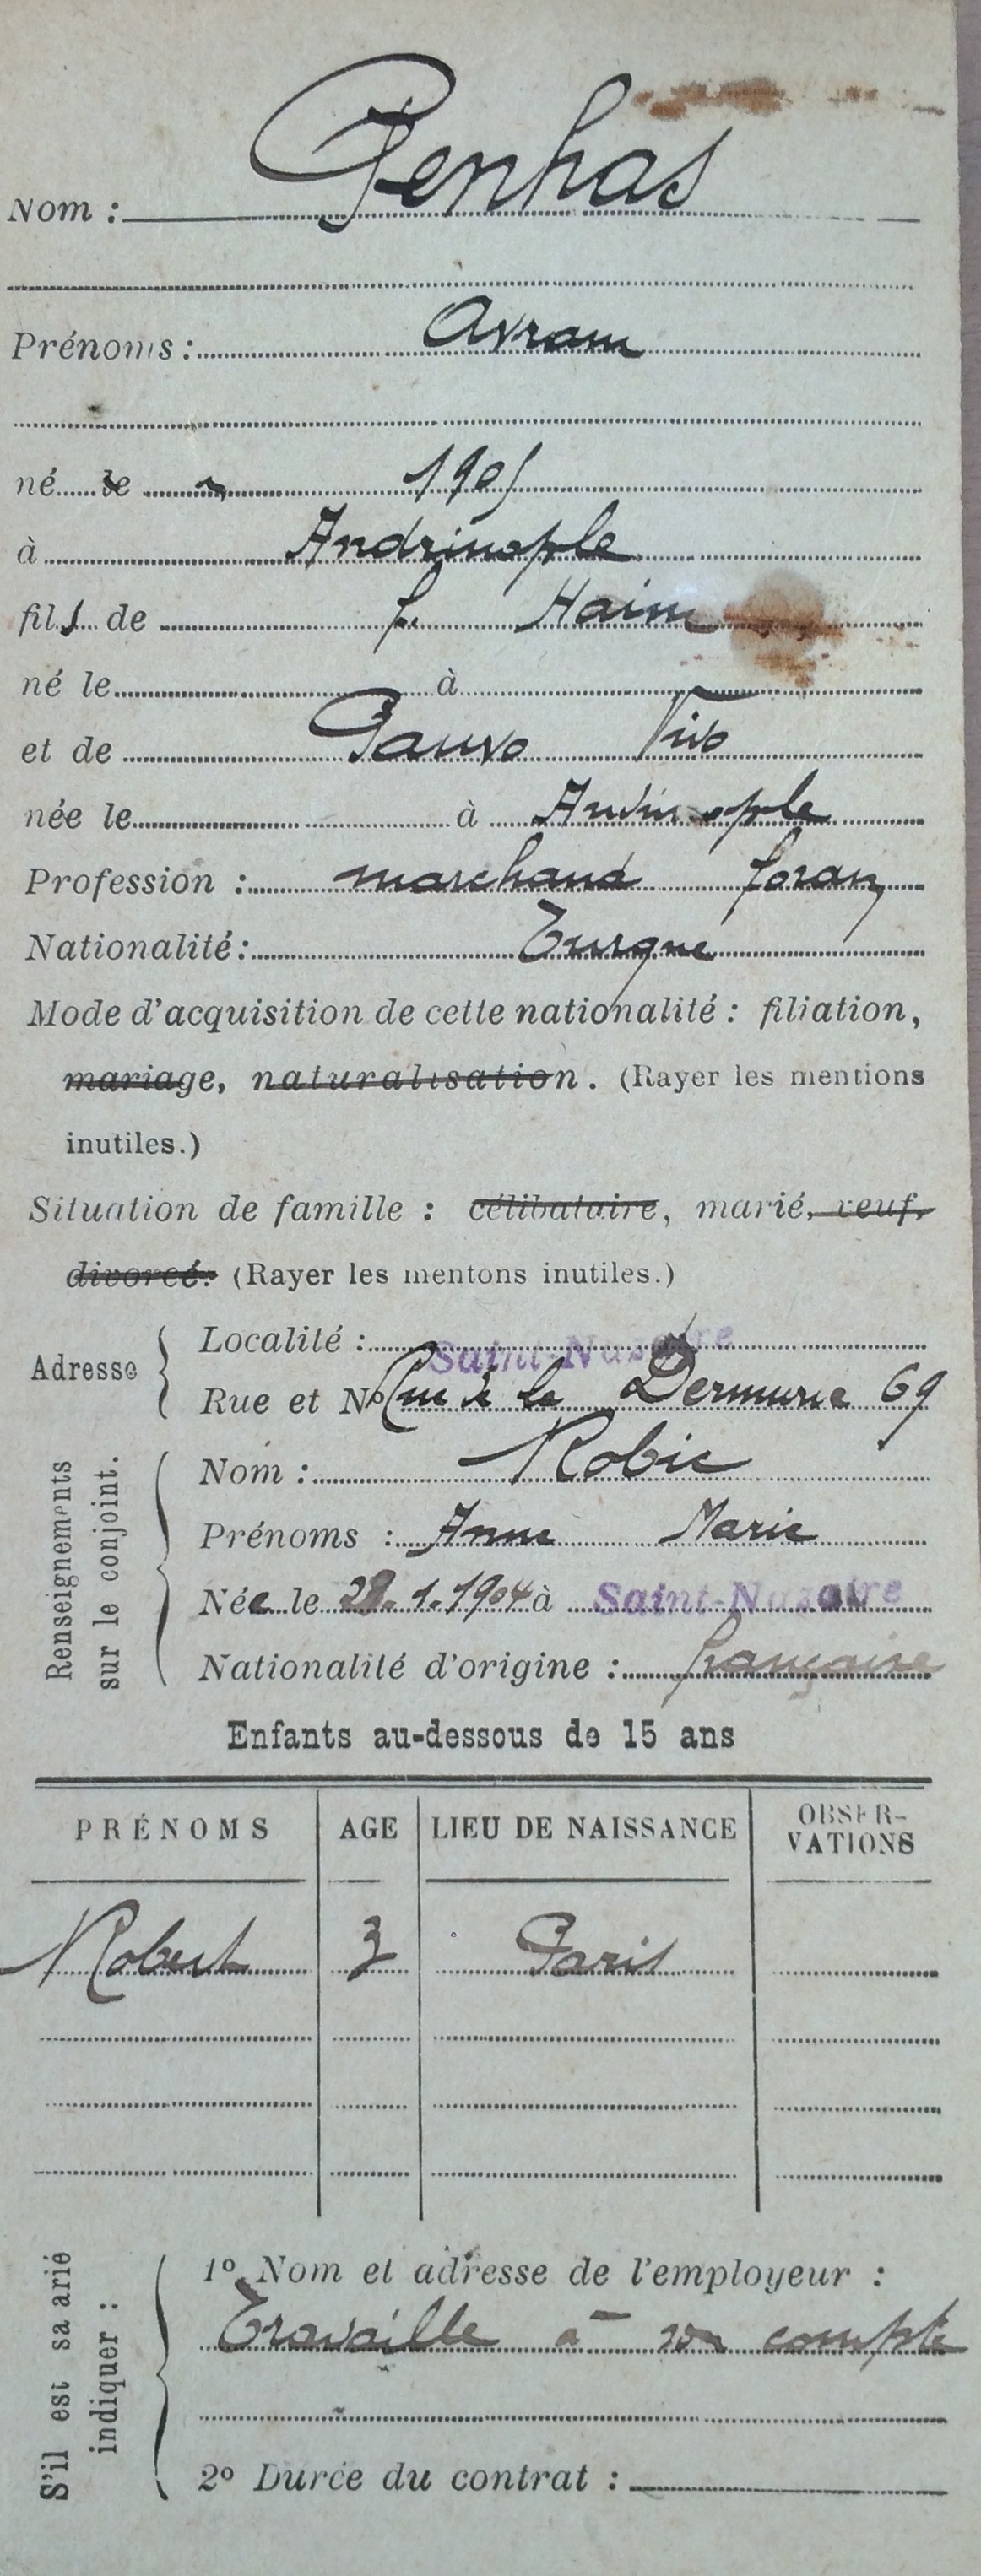 Nom : Penhas
Prénoms : Avram
né le 1905
à Andrinople
fils de f. Haim
né le à
et de Vivo
née le à Andrinople
Profession : marchand forain
Nationalité : Turque
Mode d'acquisition de cette nationalité : filiation,
mariage, naturalisation. (Rayer les mentions
inutiles.)
Situation de famille : célibataire, marié, veuf,
divorcé. (Rayer les mentons inutiles.)
Adresse
Localité : Saint-Nazaire
Rue et No Rue de la 69
Renseignements
sur le conjoint.
Nom : Robic
Prénoms : Anne Marie
Née le 28.1.1904 à Saint-Nazaire
Nationalité d'origine : française
Enfants au-dessous de 15 ans
PRÉNOMS AGE LIEU DE NAISSANCE OBSER-
VATIONS
Robert 3 Paris
S'il est salarié
indiquer :
1º Nom et adresse de l'employeur :
Travaille à son compte
2º Durée du contrat :